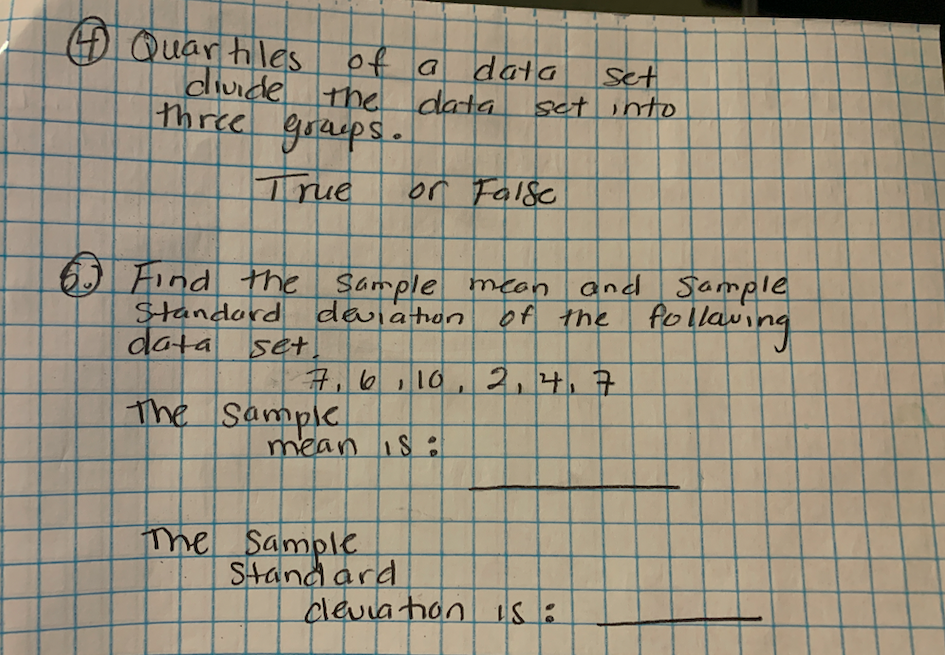 ④ Quartiles of a data set
divide the data set into
three groups.
True or False
⑤.) Find the sample mean and sample
standard deviation of the following
data set.
7, 6, 10, 2, 4, 7
The sample
mean is:
The sample
standard
deviation is: